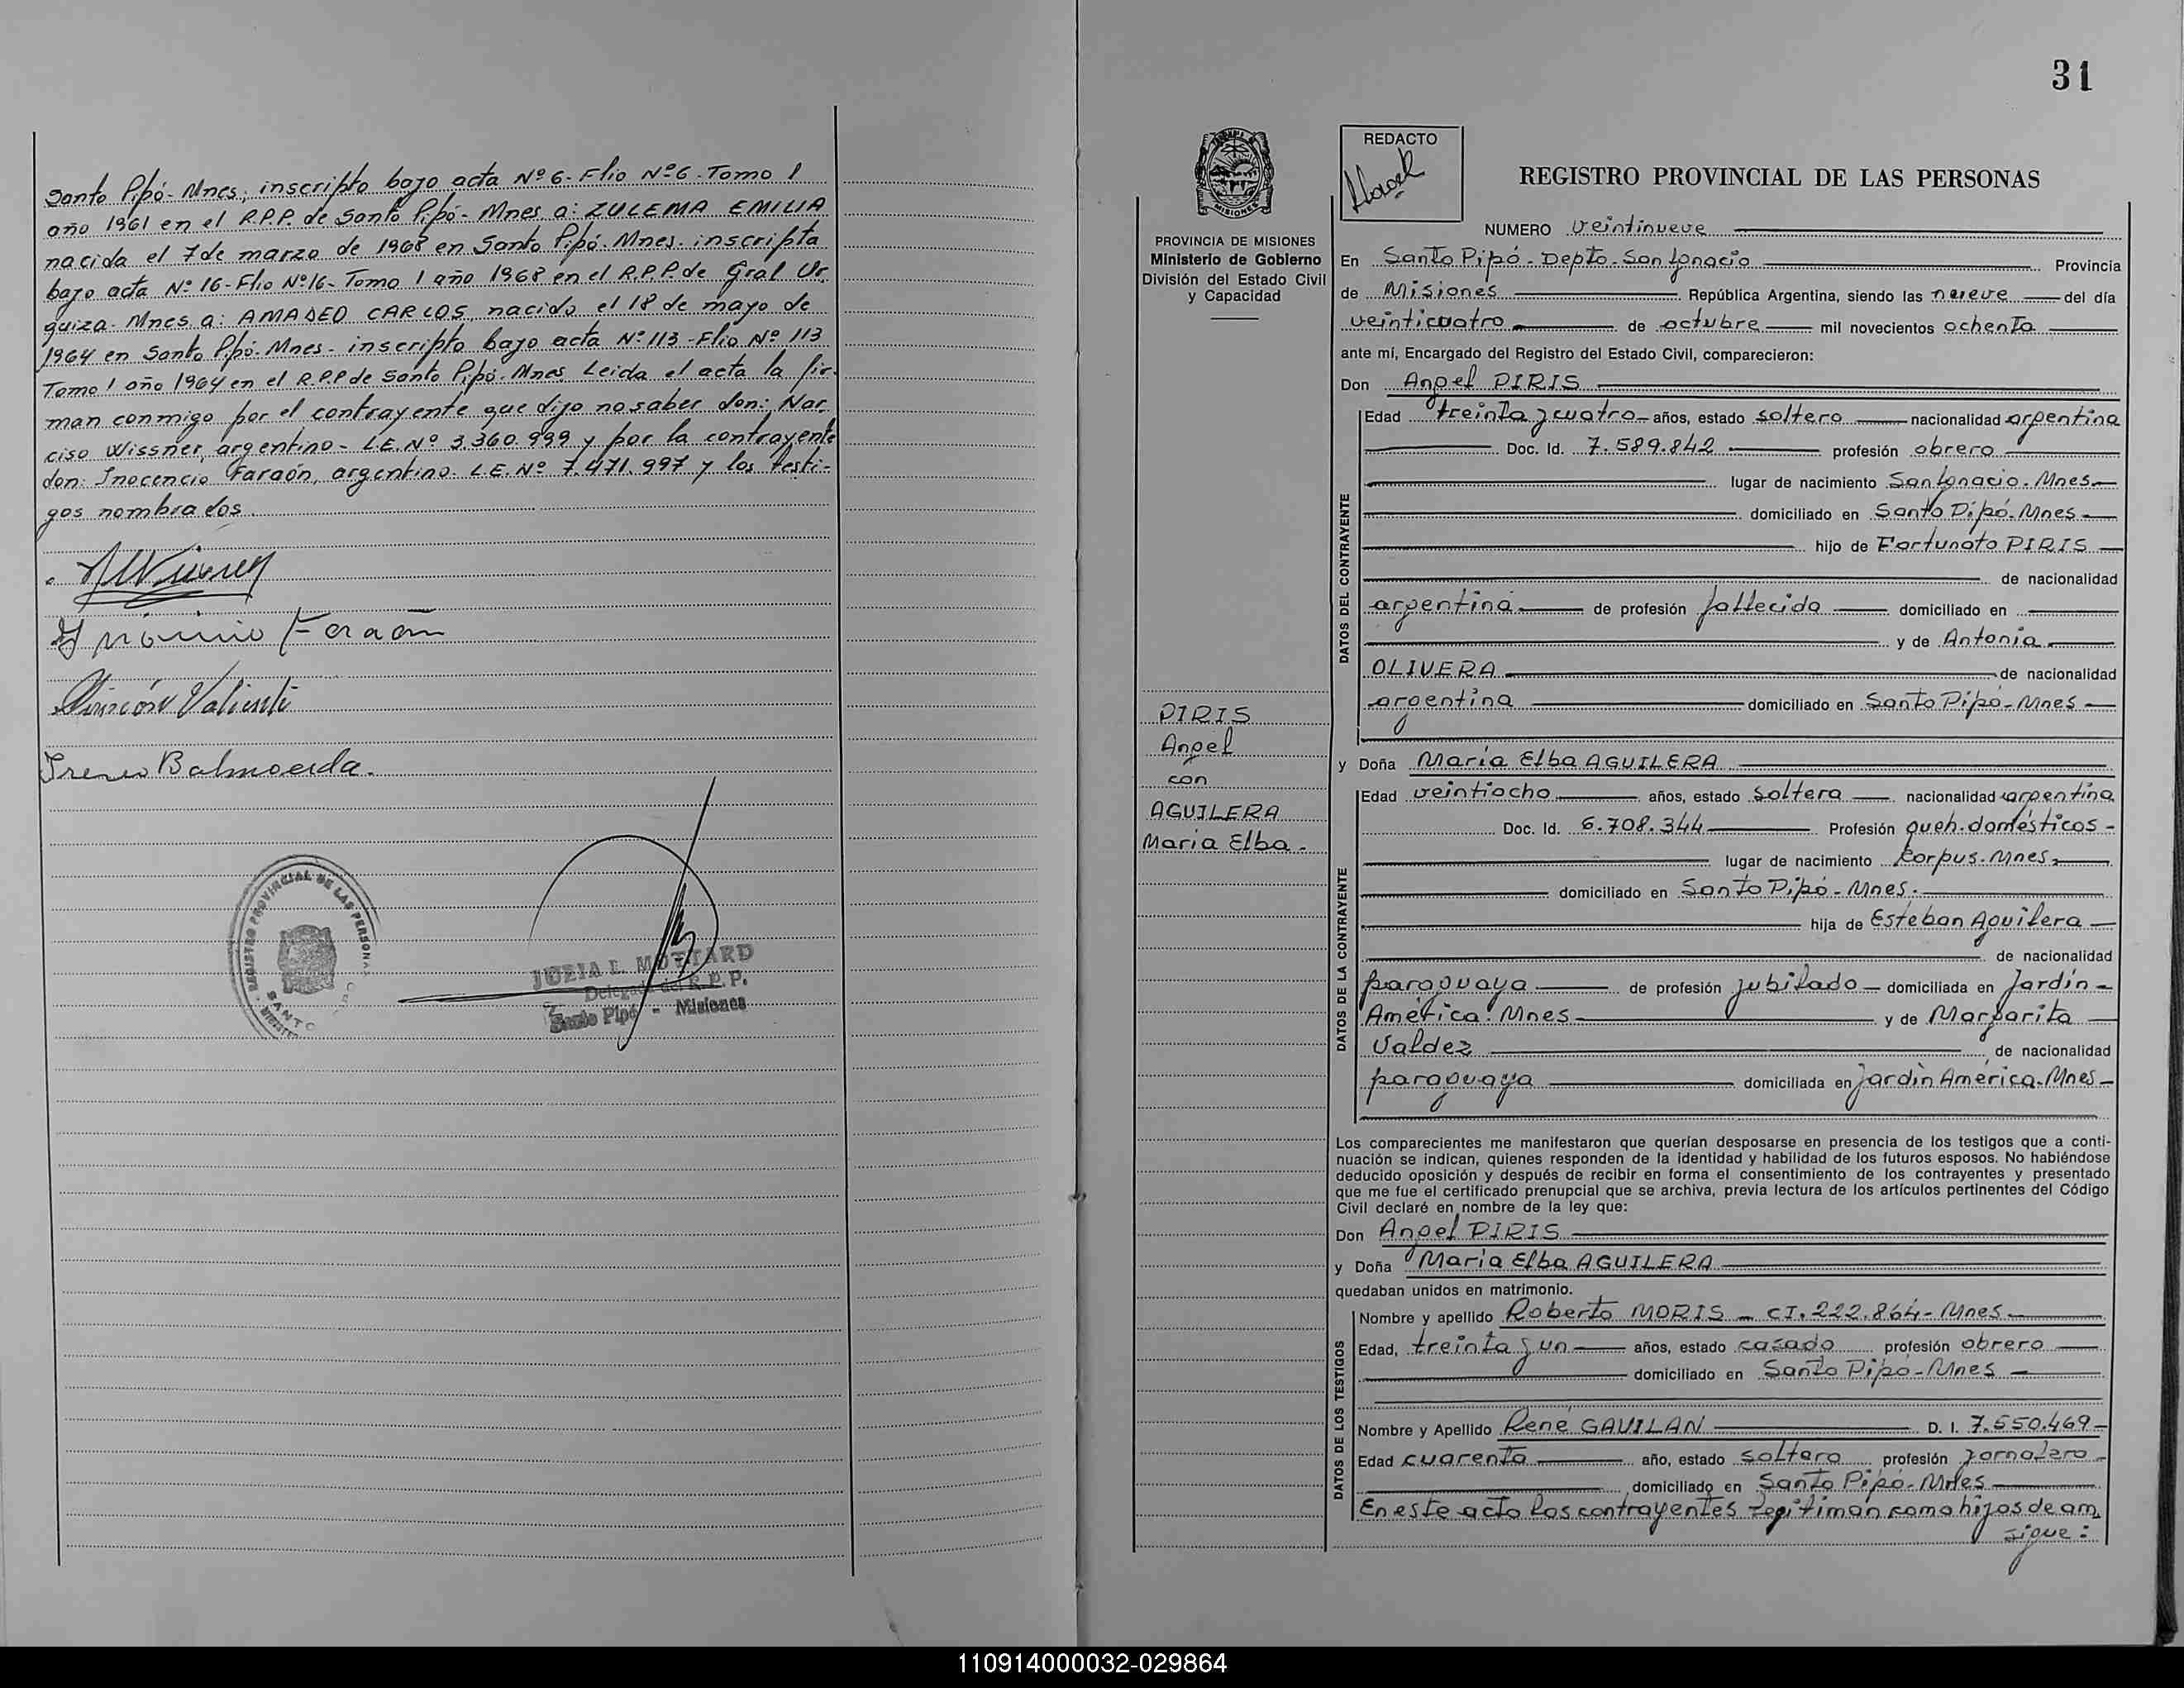 Santo Pipó - Mnes; inscripto bajo acta Nº 6 - Flio Nº 6 - Tomo 1
año 1961 en el R.P.P. de Santo Pipó - Mnes a: ZULEMA EMILIA
nacida el 7 de marzo de 1968 en Santo Pipó - Mnes. inscripta
bajo acta Nº 16 - Flio Nº 16 - Tomo 1 año 1968 en el R.P.P. de Gral Ur
quiza - Mnes a: AMADEO CARLOS, nacido el 18 de mayo de
1964 en Santo Pipó - Mnes - inscripto bajo acta Nº 113 - Flio Nº 113
Tomo 1 año 1964 en el R.P.P de Santo Pipó - Mnes. Leida el acta la fir
man conmigo por el contrayente que dijo no saber don: Nar
ciso Wissner, argentino - L.E. Nº 3.360.999 y por la contrayente
don: Inocencio Faraón, argentino. L.E. Nº 7.471.997 y los testi-
gos nombrados.
Valiente
Ireneo Balmaceda.
REGISTRO PROVINCIAL DE LAS PERSONAS
SANTO
MISIONES
JULIA E. MOTTARD
Delegada del R. P. P.
Santo Pipó - Misiones
31
REDACTO
REGISTRO PROVINCIAL DE LAS PERSONAS
MISIONES
PROVINCIA DE MISIONES
Ministerio de Gobierno
División del Estado Civil
y Capacidad
PIRIS
Angel
con
AGUILERA
María Elba -
NUMERO veintinueve
En Santo Pipó - Depto. San Ignacio Provincia
de Misiones República Argentina, siendo las nueve del día
veinticuatro de octubre mil novecientos ochenta
ante mí, Encargado del Registro del Estado Civil, comparecieron:
Don Angel PIRIS
DATOS DEL CONTRAYENTE
Edad treinta y cuatro años, estado soltero nacionalidad argentina
Doc. Id. 7.589.842 profesión obrero
lugar de nacimiento San Ignacio. Mnes
domiciliado en Santo Pipó - Mnes
hijo de Fortunato PIRIS
de nacionalidad
argentina de profesión fallecido domiciliado en
y de Antonia
OLIVERA de nacionalidad
argentina domiciliado en Santo Pipó - Mnes
y Doña María Elba AGUILERA
DATOS DE LA CONTRAYENTE
Edad veintiocho años, estado soltera nacionalidad argentina
Doc. Id. 6.708.344 Profesión queh. domésticos -
lugar de nacimiento Corpus. Mnes
domiciliado en Santo Pipó - Mnes.
hija de Esteban Aguilera
de nacionalidad
paraguaya de profesión jubilado domiciliada en Jardín -
América. Mnes y de Margarita
Valdez de nacionalidad
paraguaya domiciliada en Jardín América - Mnes
Los comparecientes me manifestaron que querían desposarse en presencia de los testigos que a conti-
nuación se indican, quienes responden de la identidad y habilidad de los futuros esposos. No habiéndose
deducido oposición y después de recibir en forma el consentimiento de los contrayentes y presentado
que me fue el certificado prenupcial que se archiva, previa lectura de los artículos pertinentes del Código
Civil declaré en nombre de la ley que:
Don Angel PIRIS
y Doña María Elba AGUILERA
quedaban unidos en matrimonio.
DATOS DE LOS TESTIGOS
Nombre y apellido Roberto MORIS - CI. 222.864 - Mnes
Edad, treinta y un años, estado casado profesión obrero
domiciliado en Santo Pipó - Mnes
Nombre y Apellido René GAVILAN D. I. 7.550.469
Edad cuarenta año, estado soltero profesión jornalero
domiciliado en Santo Pipó - Mnes
En este acto los contrayentes legitiman como hijos de am
sigue:
110914000032-029864